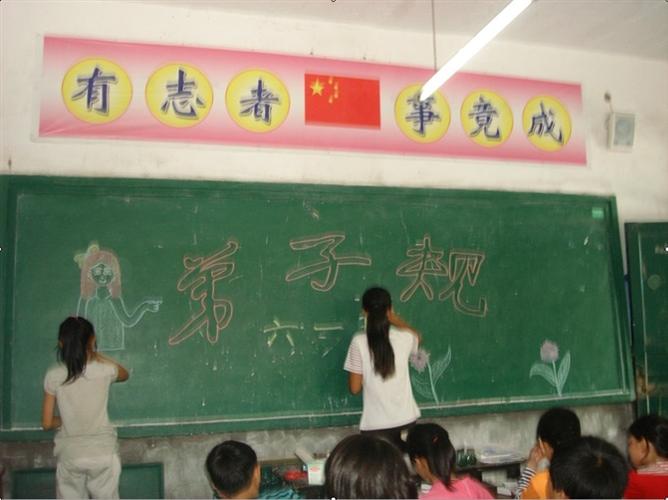 有志者事竟成
弟子规
六一